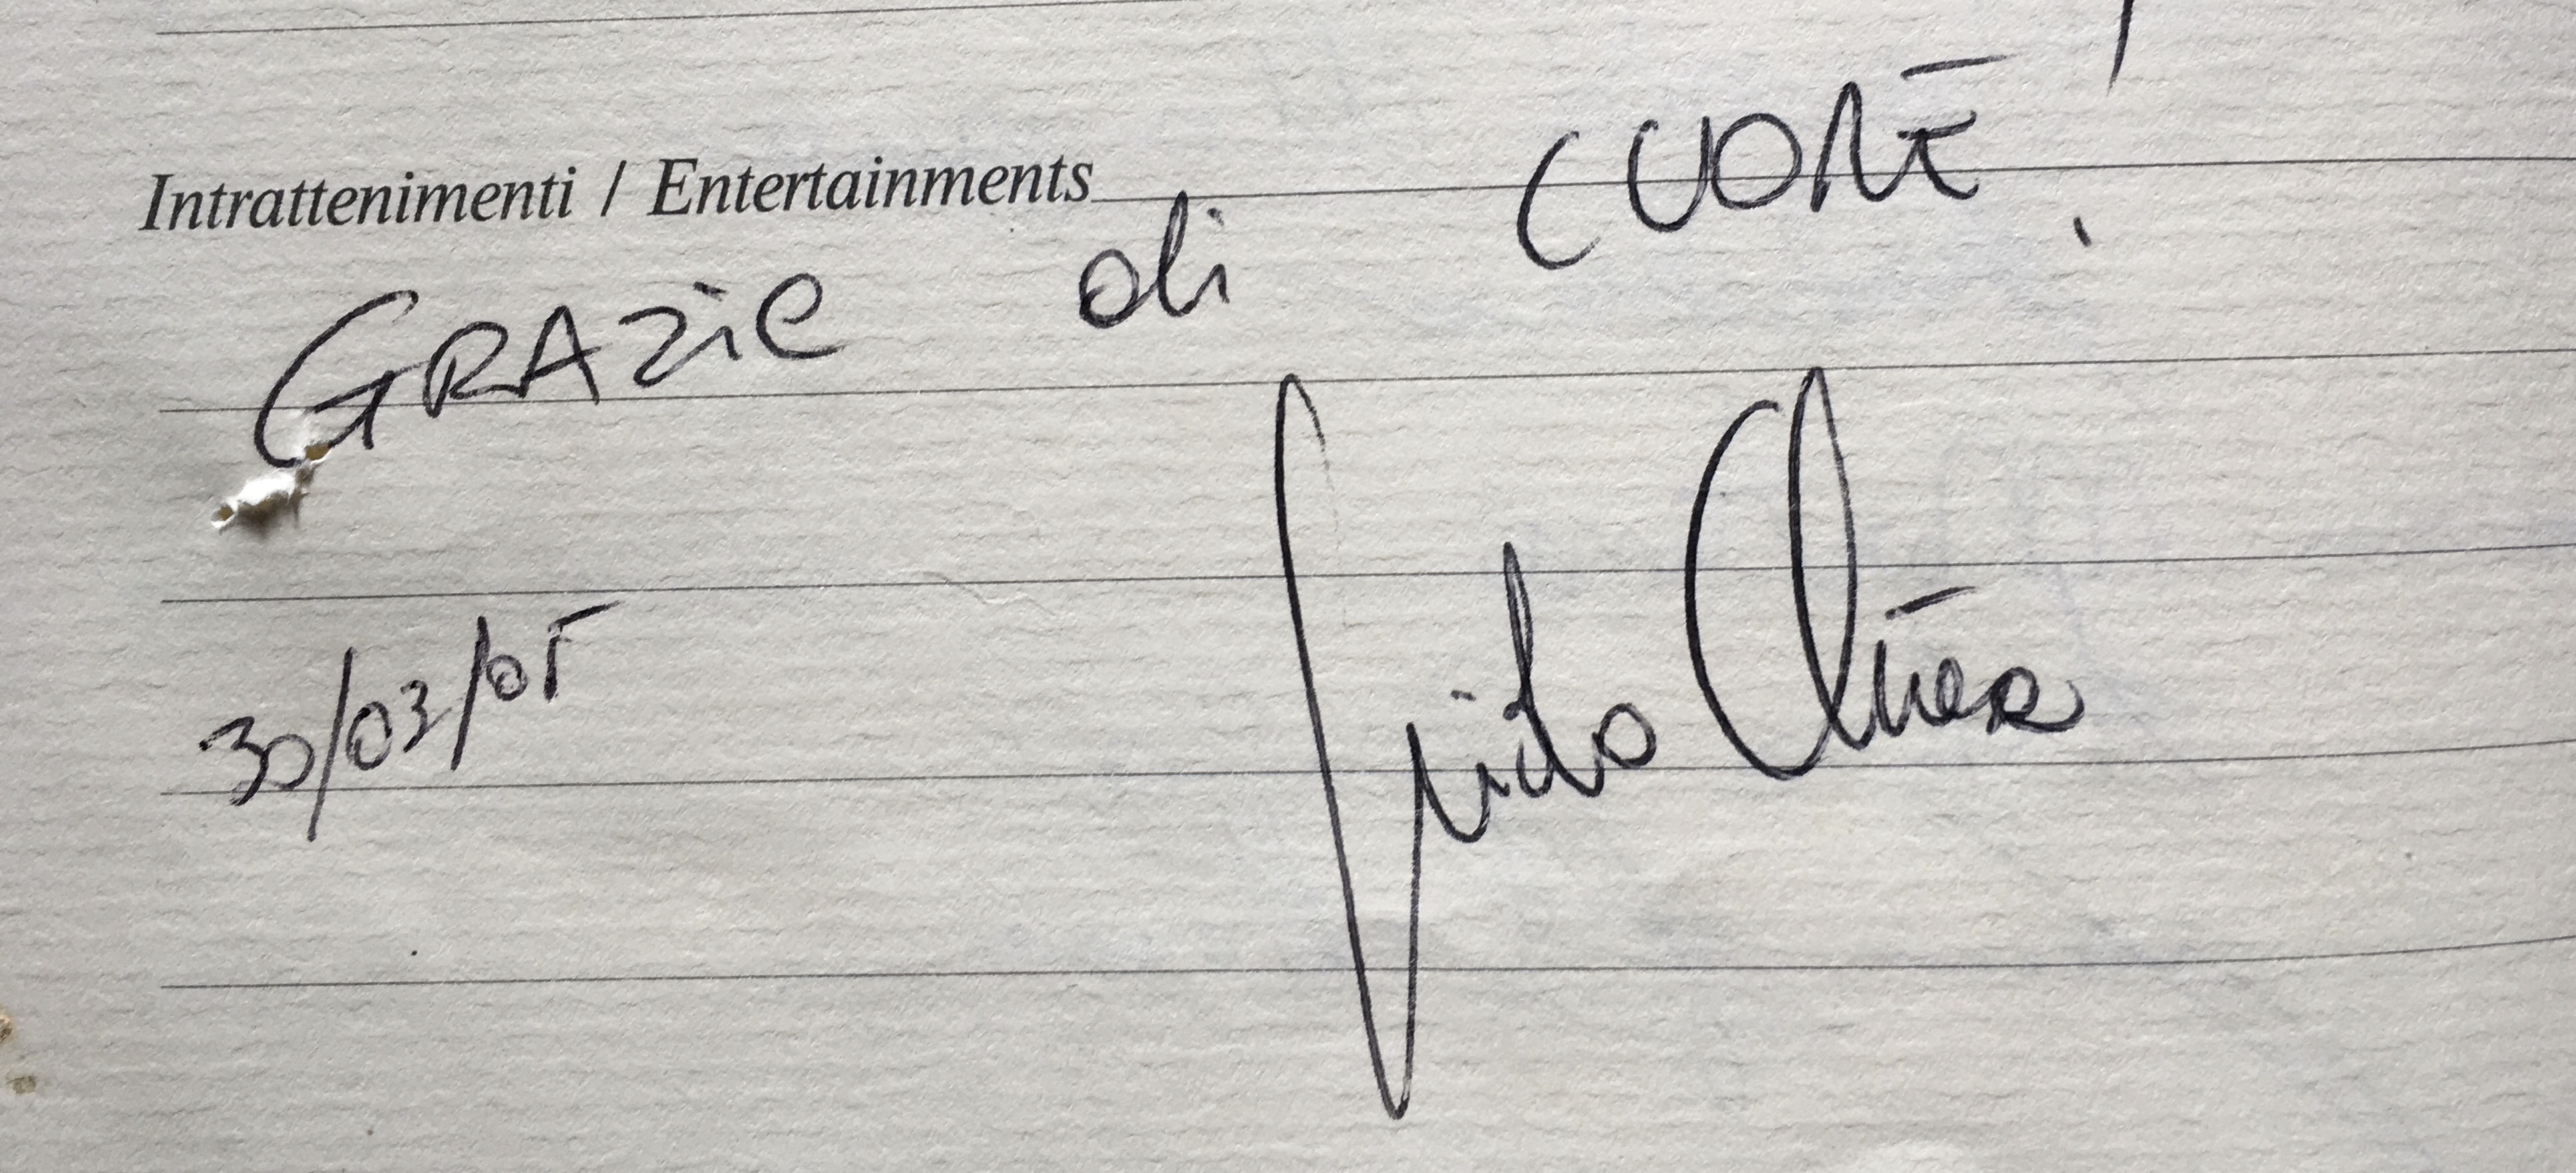 Intrattenimenti / Entertainments
GRAZie di CUORE!
30/03/05
Guido